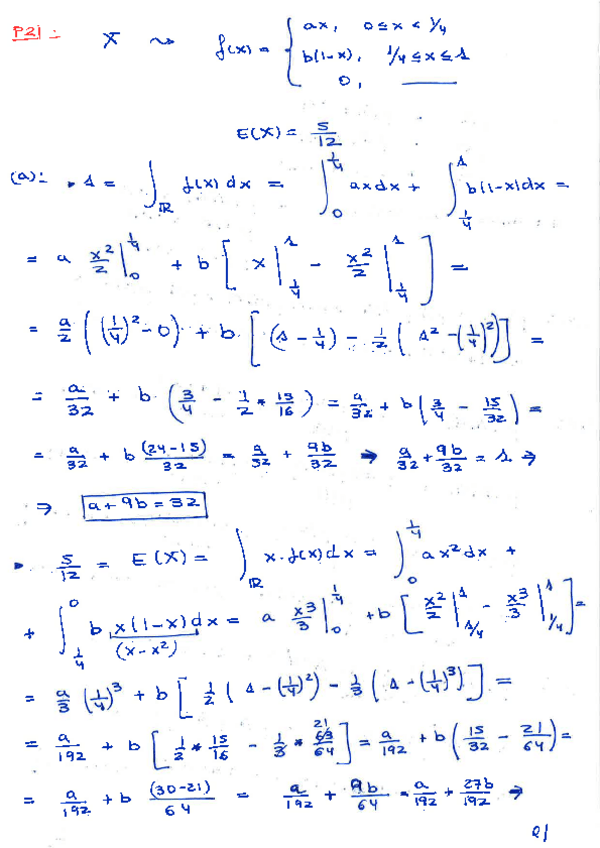 P21:- X ⇝ f(x) = { ax, 0≤x<1/4
b(1-x), 1/4≤x≤1
0, ———
E(X) = 5/12
(a):- ▸ 1 = ∫_ℝ f(x) dx = ∫_0^{1/4} axdx + ∫_{1/4}^1 b(1-x)dx =
= a x²/2 |_0^{1/4} + b [ x |_{1/4}^1 - x²/2 |_{1/4}^1 ] =
= a/2 ((1/4)² - 0) + b [ (1 - 1/4) - 1/2 ( 1² - (1/4)²)] =
= a/32 + b (3/4 - 1/2 * 15/16) = a/32 + b (3/4 - 15/32) =
= a/32 + b (24-15)/32 = a/32 + 9b/32 → a/32 + 9b/32 = 1 ⇒
⇒ a + 9b = 32
▸ 5/12 = E(X) = ∫_ℝ x·f(x) dx = ∫_0^{1/4} ax² dx +
+ ∫_{1/4}^0 b x(1-x) dx = a x³/3 |_0^{1/4} + b [ x²/2 |_{1/4}^1 - x³/3 |_{1/4}^1 ] =
(x-x²)
= a/3 (1/4)³ + b [ 1/2 (1 - (1/4)²) - 1/3 (1 - (1/4)³) ] =
= a/192 + b [ 1/2 * 15/16 - 1/3 * 63/64 ] = a/192 + b (15/32 - 21/64) =
= a/192 + b (30-21)/64 = a/192 + 9b/64 = a/192 + 27b/192 ⇒